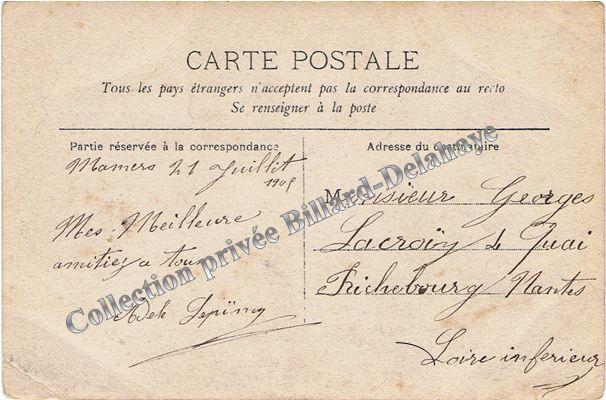 CARTE POSTALE
Tous les pays étrangers n'acceptent pas la correspondance au recto
Se renseigner à la poste
Partie réservée à la correspondance
Mamers 21 Juillit
1905
Mes Meilleure
amitiez a tous
Adele
Adresse du Destinataire
Monsieur Georges
Lacroix 4 Quai
Richebourg Nantes
Loire inferieur
Collection privée Billard-Delanaye